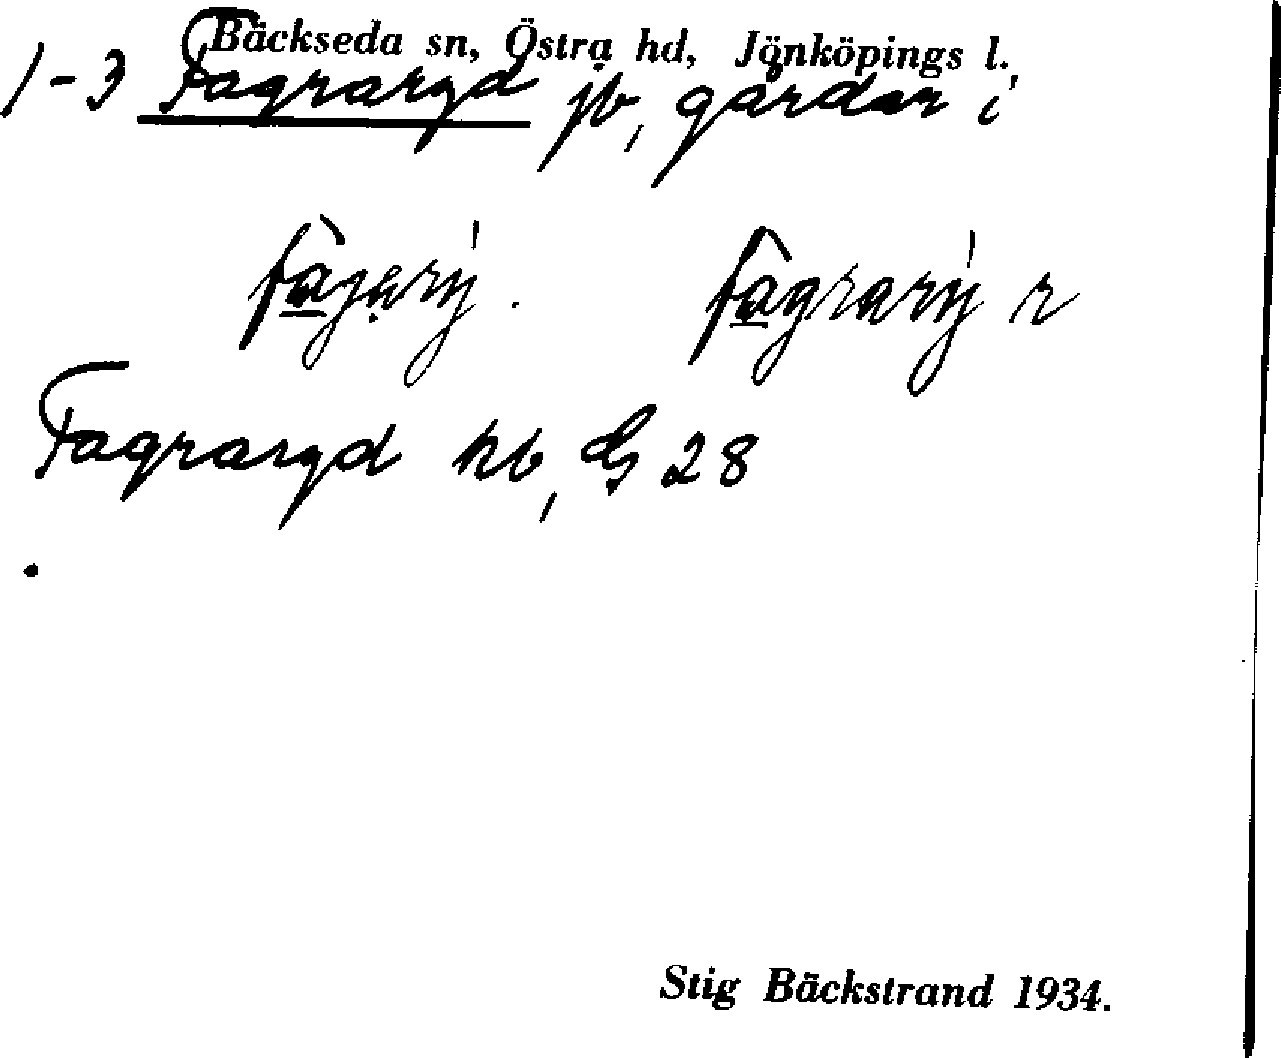 Bäckseda sn, Östra hd, Jönköpings l.
1-3 Fagraryd jb, gårdar i
fàgary̍. fàgrary̍ r
Fagraryd hb, G 28
Stig Bäckstrand 1934.